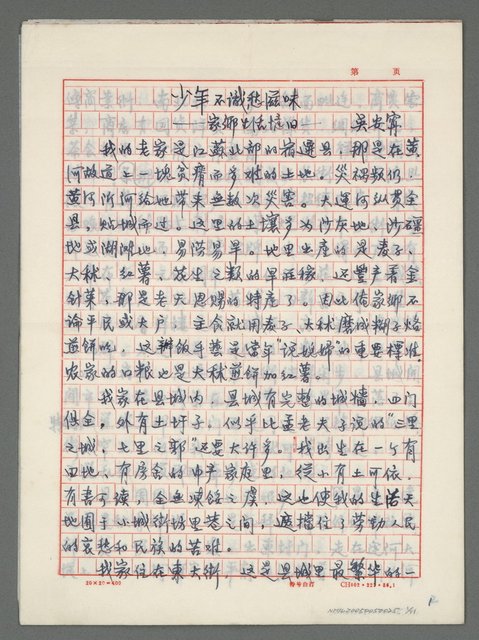 第　页
少年不識愁滋味
——家鄉生活憶旧——　吳安寧
我的老家是江蘇北部的宿遷县，那是在黄
河故道上一塊貧瘠而多难的土地，災禍頻仍，
黄河沂河给她带来無数次災害。大運河纵貫全
县，贴城而过。这里的土壤多为沙灰地，沙礓
地或湖滩地，易涝易旱。地里出産的是麦子，
大秫，红薯，花生之類的旱荘稼，还豐产着金
針菜，那是老天恩赐的特産了。因此俺家鄉不
論平民或大户，主食就用麦子，大秫磨成糊子烙
煎餅吃，这辦飯手藝是当年“说媳婦”的重要標准。
农家的口粮也是大秫煎餅加红薯。
我家在县城内，县城有完整的城墻，四门
俱全，外有土圩子，似乎比孟老夫子说的“三里
之城，七里之郭”还要大许多。我出生在一个有
田地，有房舍的中产家庭里，從小有土可依，
有書可读，全無凍餒之虞，这也使我的生活天
地囿于小城街坊里巷之间，遮擋住了劳动人民
的哀愁和民族的苦难。
我家住在東大街，这是县城里最繁华的一
20×20=400
CH802·229·88.1